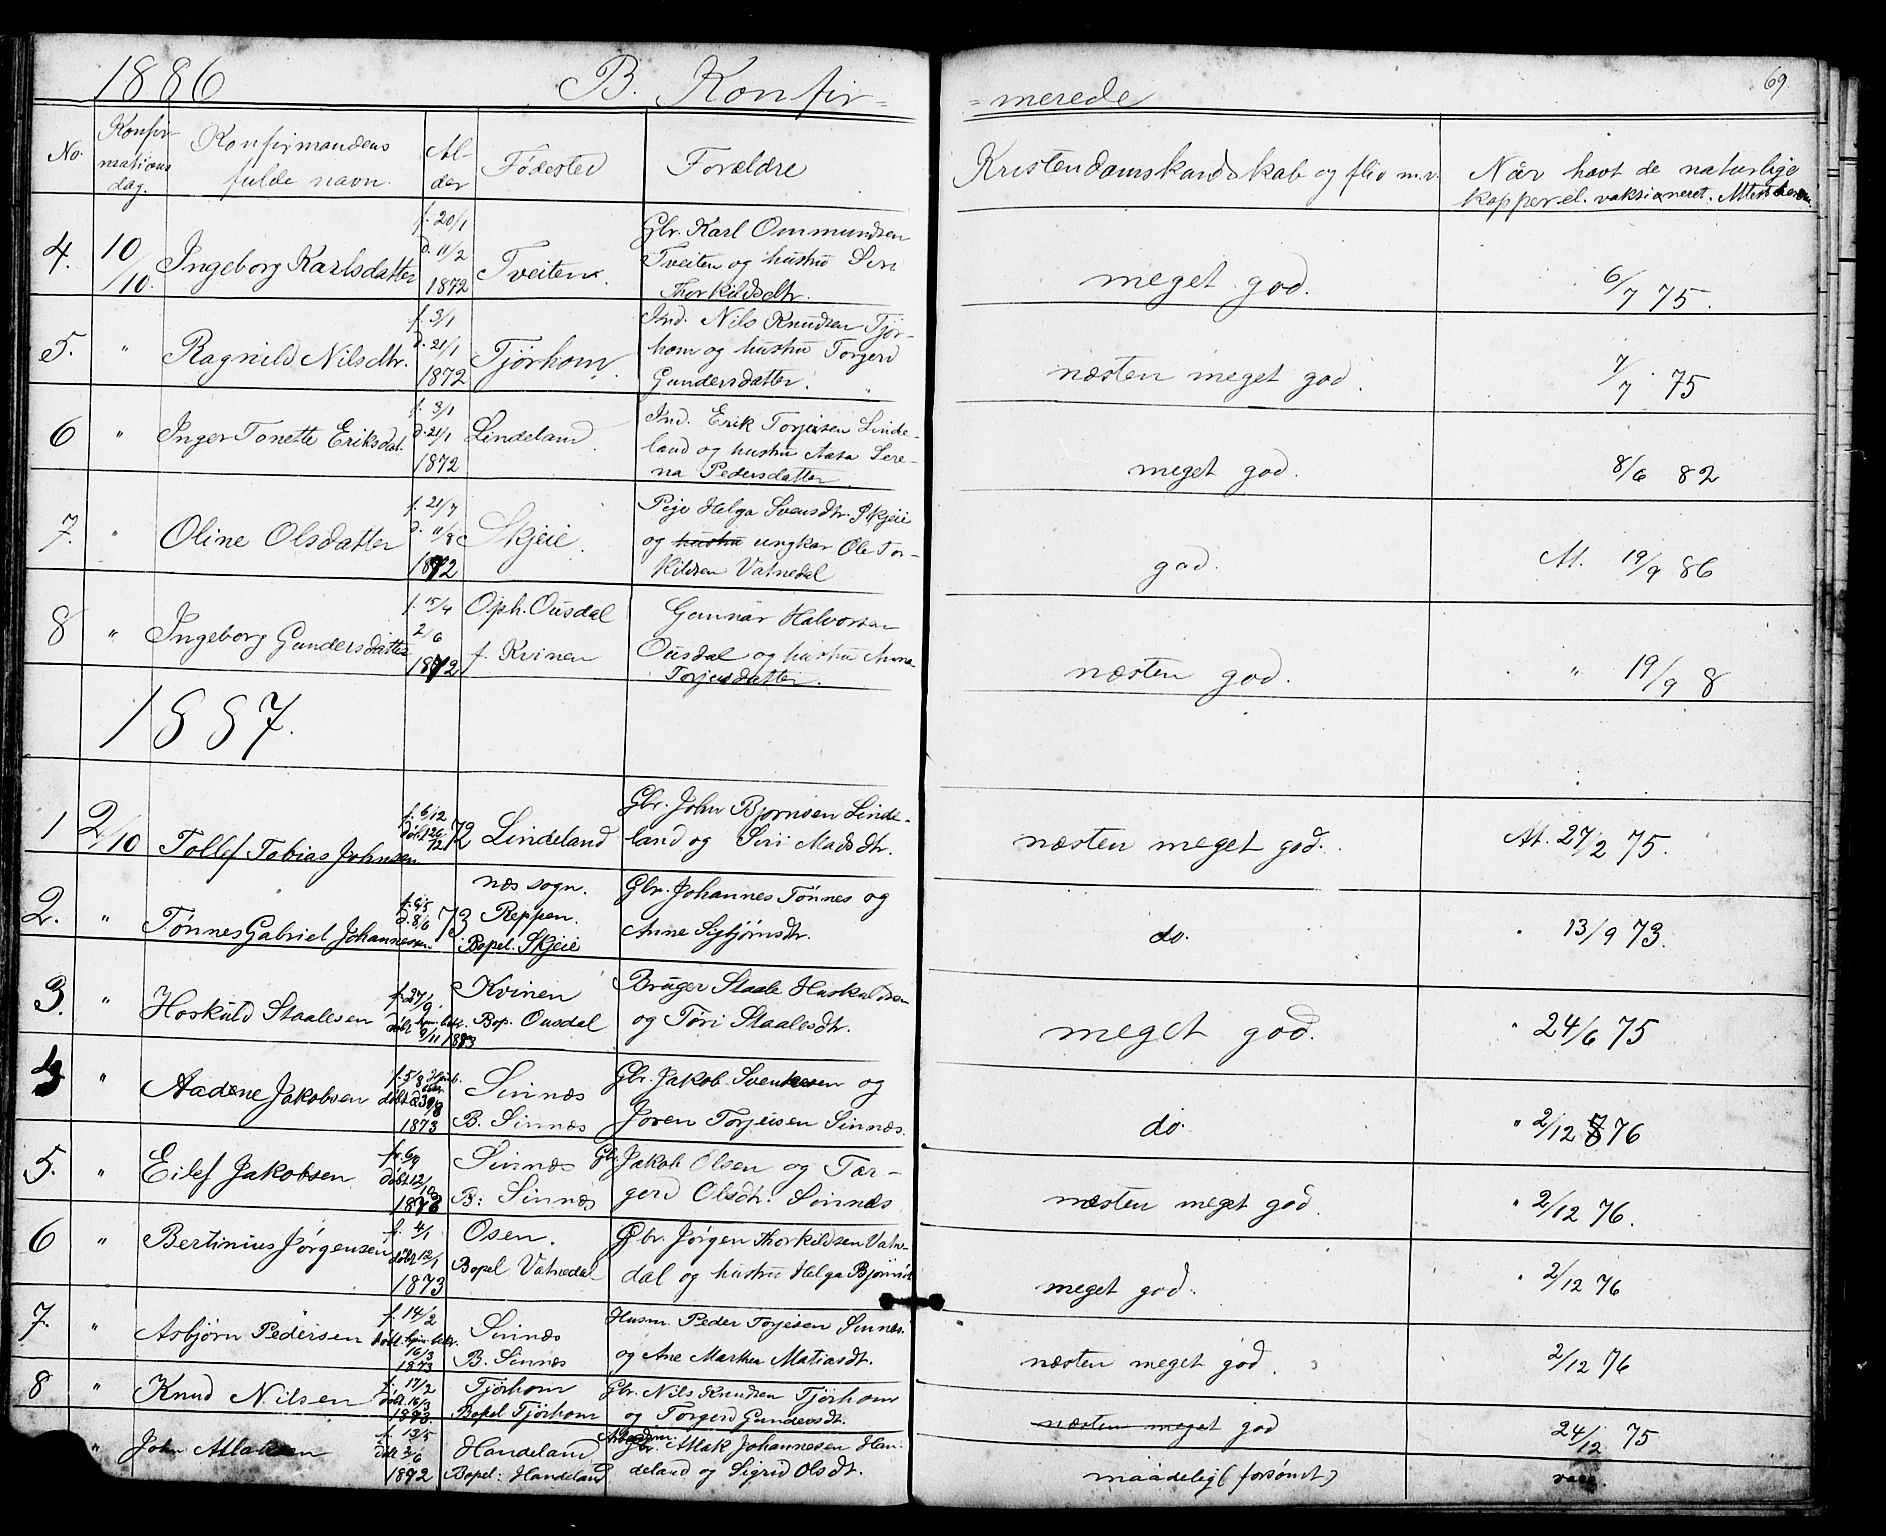 1886 B. Konfir-
=merede 69
No. Konfir-mations dag. Konfirmandens fulde navn. Al-der Fødested Forældre Kristendomskundskab og flid m.v. Når havt de naturlige kopper el. vaksineret.
4. 10/10. Ingeborg Karlsdatter f. 20/1 d. 11/2 1872 Tveiten. Gbr. Karl Ommundsen
Tveiten og hustru Siri
Thorkildsdtr. meget god. 6/7 75.
5. " Ragnild Nilsdtr. f. 3/1 d. 21/1 1872 Tjørhom. Ind. Nils Knudsen Tjør-
hom og hustru Torgerd
Gundersdatter. næsten meget god. 7/7 75
6 " Inger Tonette Eriksdat. f. 3/1 d. 21/1 1872 Lindeland. Ind. Erik Torjeisen Linde-
land og hustru Aasa Sere-
na Pedersdatter. meget god. 8/6 82
7. " Oline Olsdatter f. 21/7 d. 11/8 1872 Skjeie. Pige Helga Svensdtr. Skjeie
og hustru ungkar Ole Tor-
kildsen Vatnedal god. At. 19/9 86
8 " Ingeborg Gundersdatter f. 15/4 2/6 1872 Oph. Ousdal
f. Kvinen Gunnar Halvorsen
Ousdal og hustru Anna
Torjeisdatter. næsten god. " 19/9 8
1887.
1 2/10 Tollef Tobias Johnsen f. 6/12 døbt 26/12 72 Lindeland Gbr. John Bjørnsen Linde-
land og Siri Madsdtr. næsten meget god. At. 27/2 75.
2. " Tønnes Gabriel Johannessen f. 6/5 d. 8/6 73 næs sogn.
Reppen.
Bopel. Skjeie Gbr. Johannes Tønnes og
Anne Sigbjørnsdtr. do. " 13/9 73.
3. " Hoskuld Staalesen f. 27/9 døbt 9/11 1873 Kvinen
Bop. Ousdal Bruger Staale Huskuldsen
og Tøri Staalesdtr. meget god. " 24/6 75
4 " Aadne Jakobsen f. 5/8 døbt 1873 Sinnæs
B. Sinnæs Gbr. Jakob Svenkesen og
Joren Torjeisen Sinnæs. do. " 2/12 76
5. " Eilef Jakobsen døbt 12/10 1873 Sinnæs
B: Sinnæs Gbr. Jakob Olsen og Tar-
gerd Olsdtr. Sinnæs næsten meget god. " 2/12 76.
6 " Bertinius Jørgensen f. 4/1 døbt 12/1 1873 Osen.
Bopel Vatnedal Gbr. Jørgen Thorkildsen Vatne-
dal og hustru Helga Bjørnsdt meget god. " 2/12 76
7. " Asbjørn Pedersen f. 14/2 døbt. hjem. bekr. 16/3 1873 Sinnæs
B. Sinnæs Husm. Peder Torjesen Sinnæs.
og Ane Marthea Matiasdt. næsten meget god. 2/12 76
8 " Knud Nilsen f. 17/2 døbt 16/3 1873 Tjørhom
Bopel Tjørhom Gbr. Nils Knudsen Tjørhom
og Torgerd Gundersdt. næsten meget god 24/12 75
" John Atlaksen f. 13/5 døbt 3/6 1872 Handeland
Bopel: Handeland Gbr. Atlak Johannesen Han-
deland og Sigrid Olsdt. maadelig (forsømt)